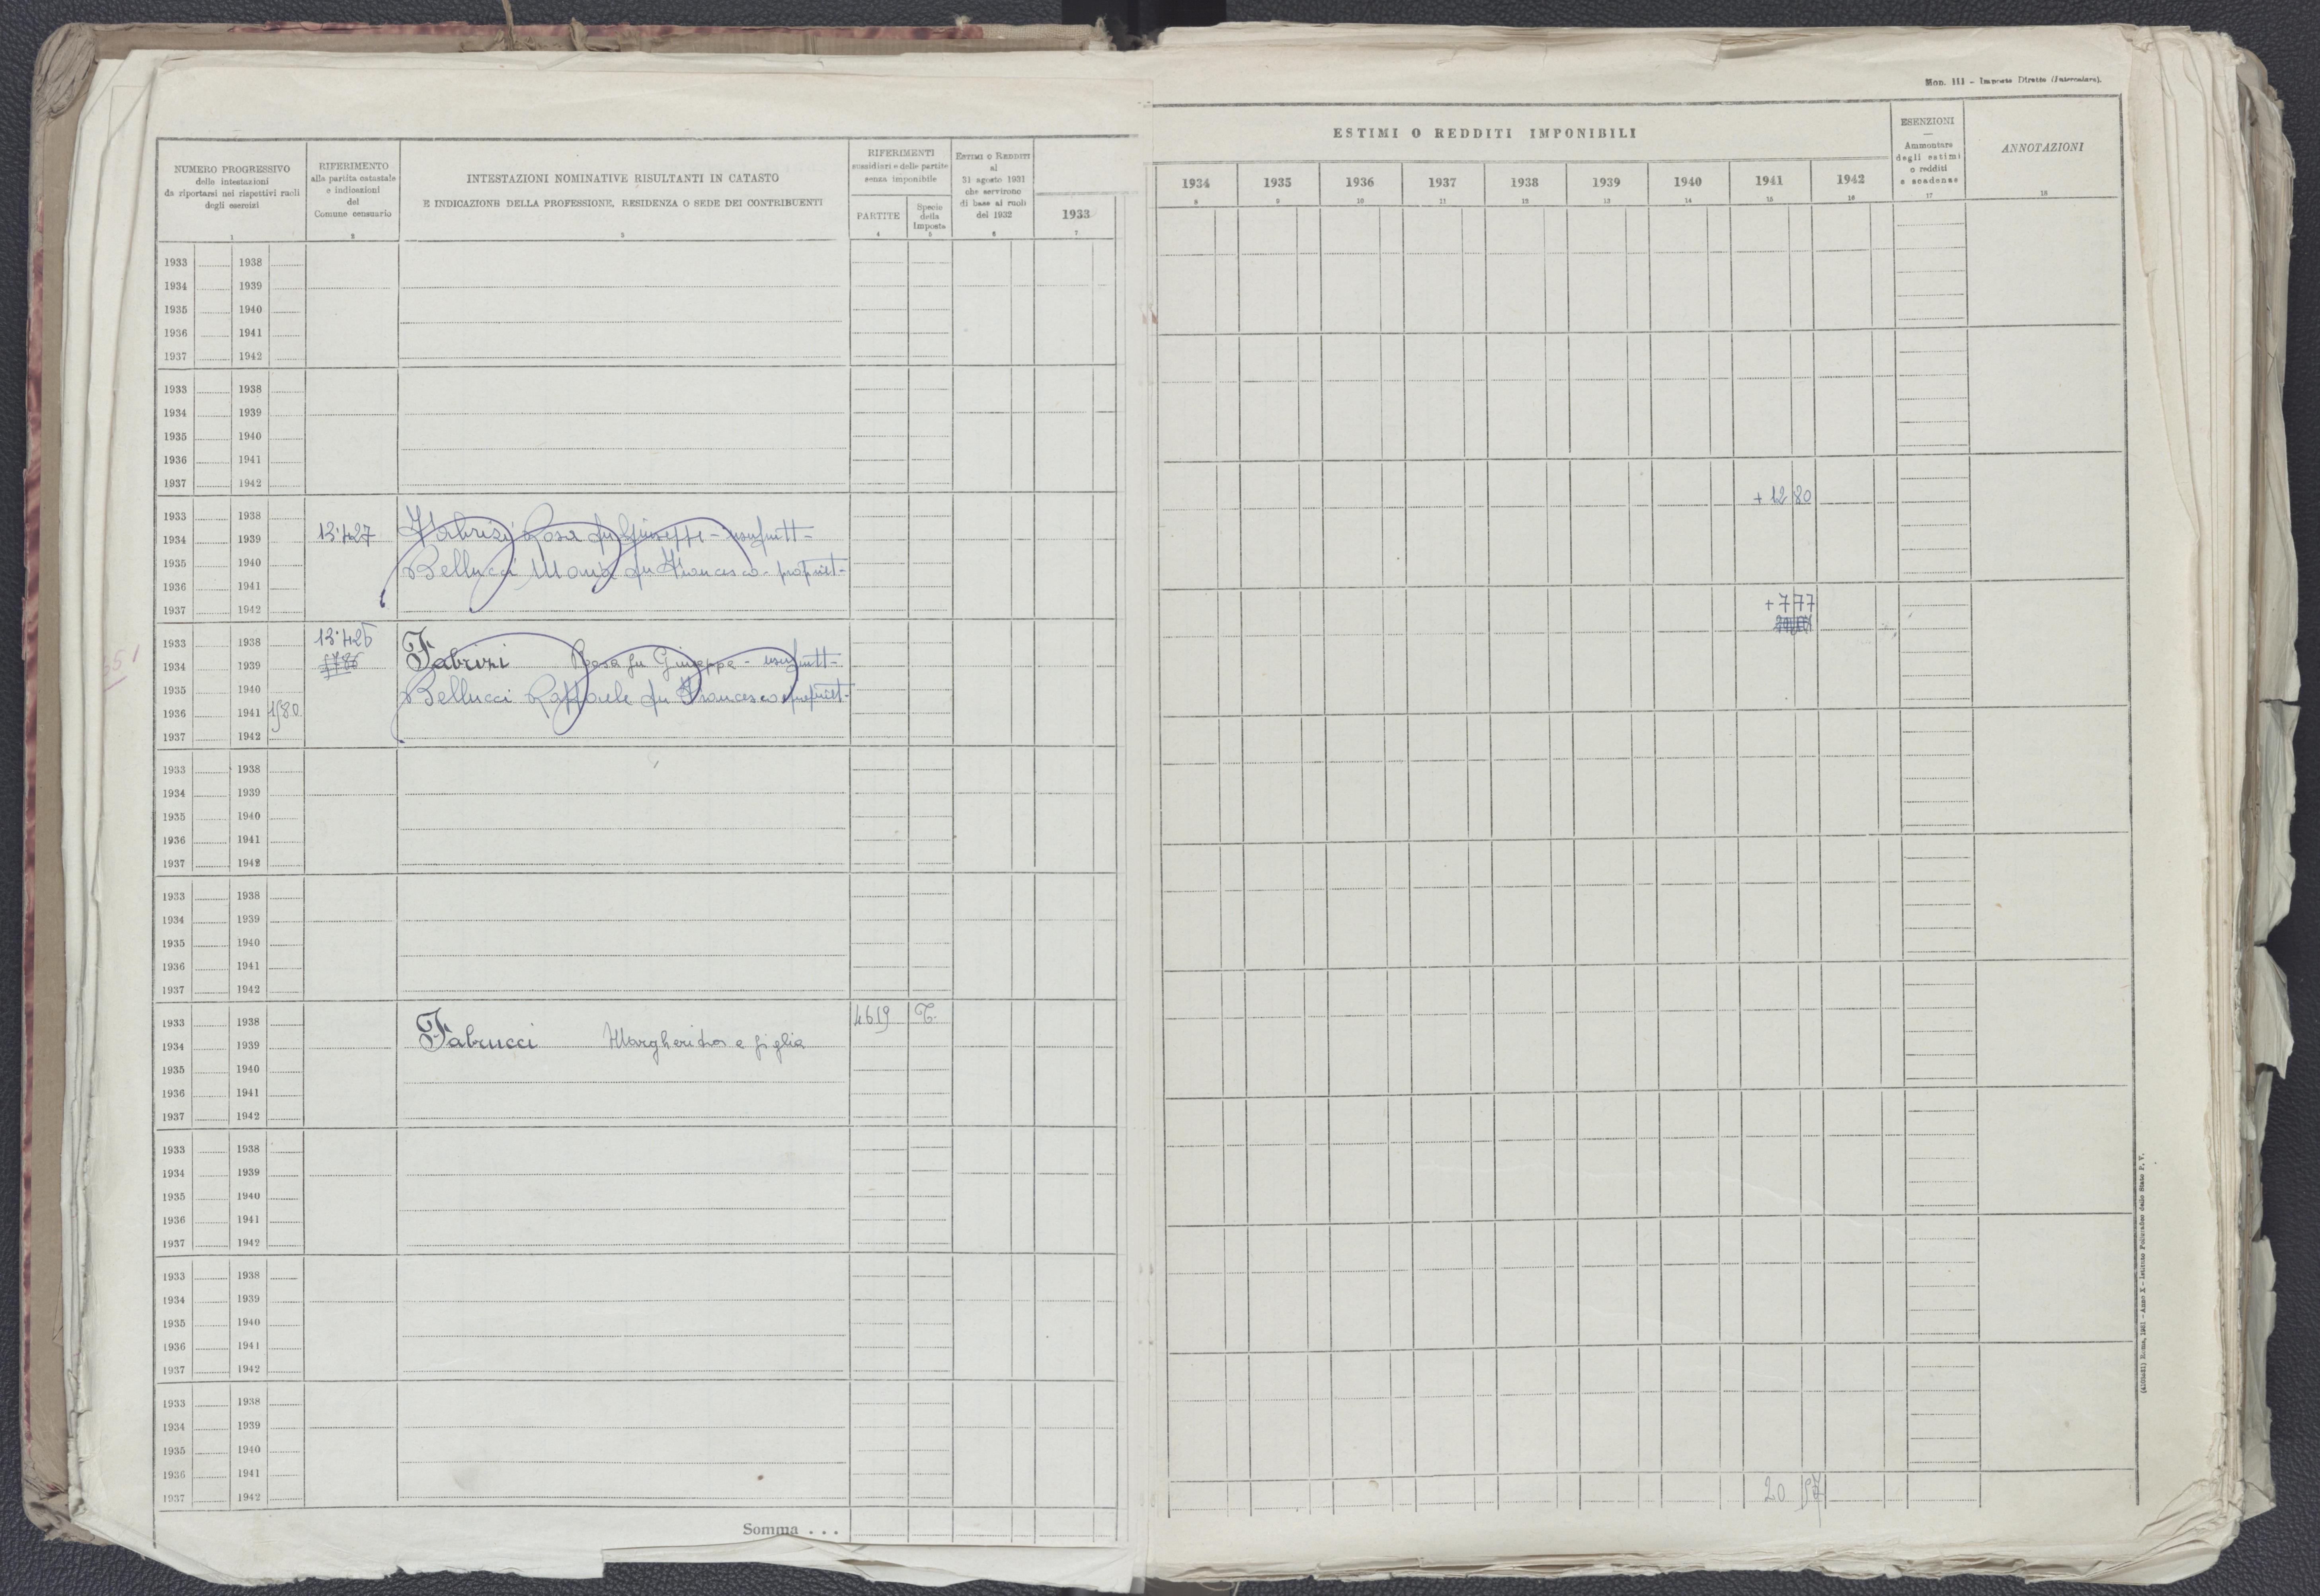 Mod. III - Imposte Dirette (Intercalare).
NUMERO PROGRESSIVO
delle intestazioni
da riportarsi nei rispettivi ruoli
degli esercizi
1
RIFERIMENTO
alla partita catastale
e indicazioni
del
Comune censuario
2
INTESTAZIONI NOMINATIVE RISULTANTI IN CATASTO
E INDICAZIONE DELLA PROFESSIONE, RESIDENZA O SEDE DEI CONTRIBUENTI
3
RIFERIMENTI
sussidiari e delle partite
senza imponibile
PARTITE
4
Specie
della
Imposta
5
ESTIMI O REDDITI
al
31 agosto 1931
che servirono
di base ai ruoli
del 1932
6
1933
7
ESTIMI O REDDITI IMPONIBILI
1934 1935 1936 1937 1938 1939 1940 1941 1942
8 9 10 11 12 13 14 15 16
ESENZIONI
—
Ammontare
degli estimi
o redditi
e scadenze
17
ANNOTAZIONI
18
1933 1938
1934 1939
1935 1940
1936 1941
1937 1942
1933 1938
1934 1939
1935 1940
1936 1941
1937 1942
1933 1938 + 12 80
1934 1939 13427 Fabrizi Rosa fu Giuseppe - usufrutt -
1935 1940 Bellucci Maria fu Francesco - propriet -
1936 1941
1937 1942 + 7 77
1933 1938 13426
1934 1939 Fabrizi Rosa fu Giuseppe - usufrutt -
1935 1940 Bellucci Raffaele fu Francesco propriet -
1936 1941 1580
1937 1942
1933 1938
1934 1939
1935 1940
1936 1941
1937 1942
1933 1938
1934 1939
1935 1940
1936 1941
1937 1942
1933 1938 4619 T.
1934 1939 Fabrucci Margherita e figlia
1935 1940
1936 1941
1937 1942
1933 1938
1934 1939
1935 1940
1936 1941
1937 1942
1933 1938
1934 1939
1935 1940
1936 1941
1937 1942
1933 1938
1934 1939
1935 1940
1936 1941
1937 1942 20 57
Somma . . .
Roma, 1931 - Anno X - Istituto Poligrafico dello Stato P. V.